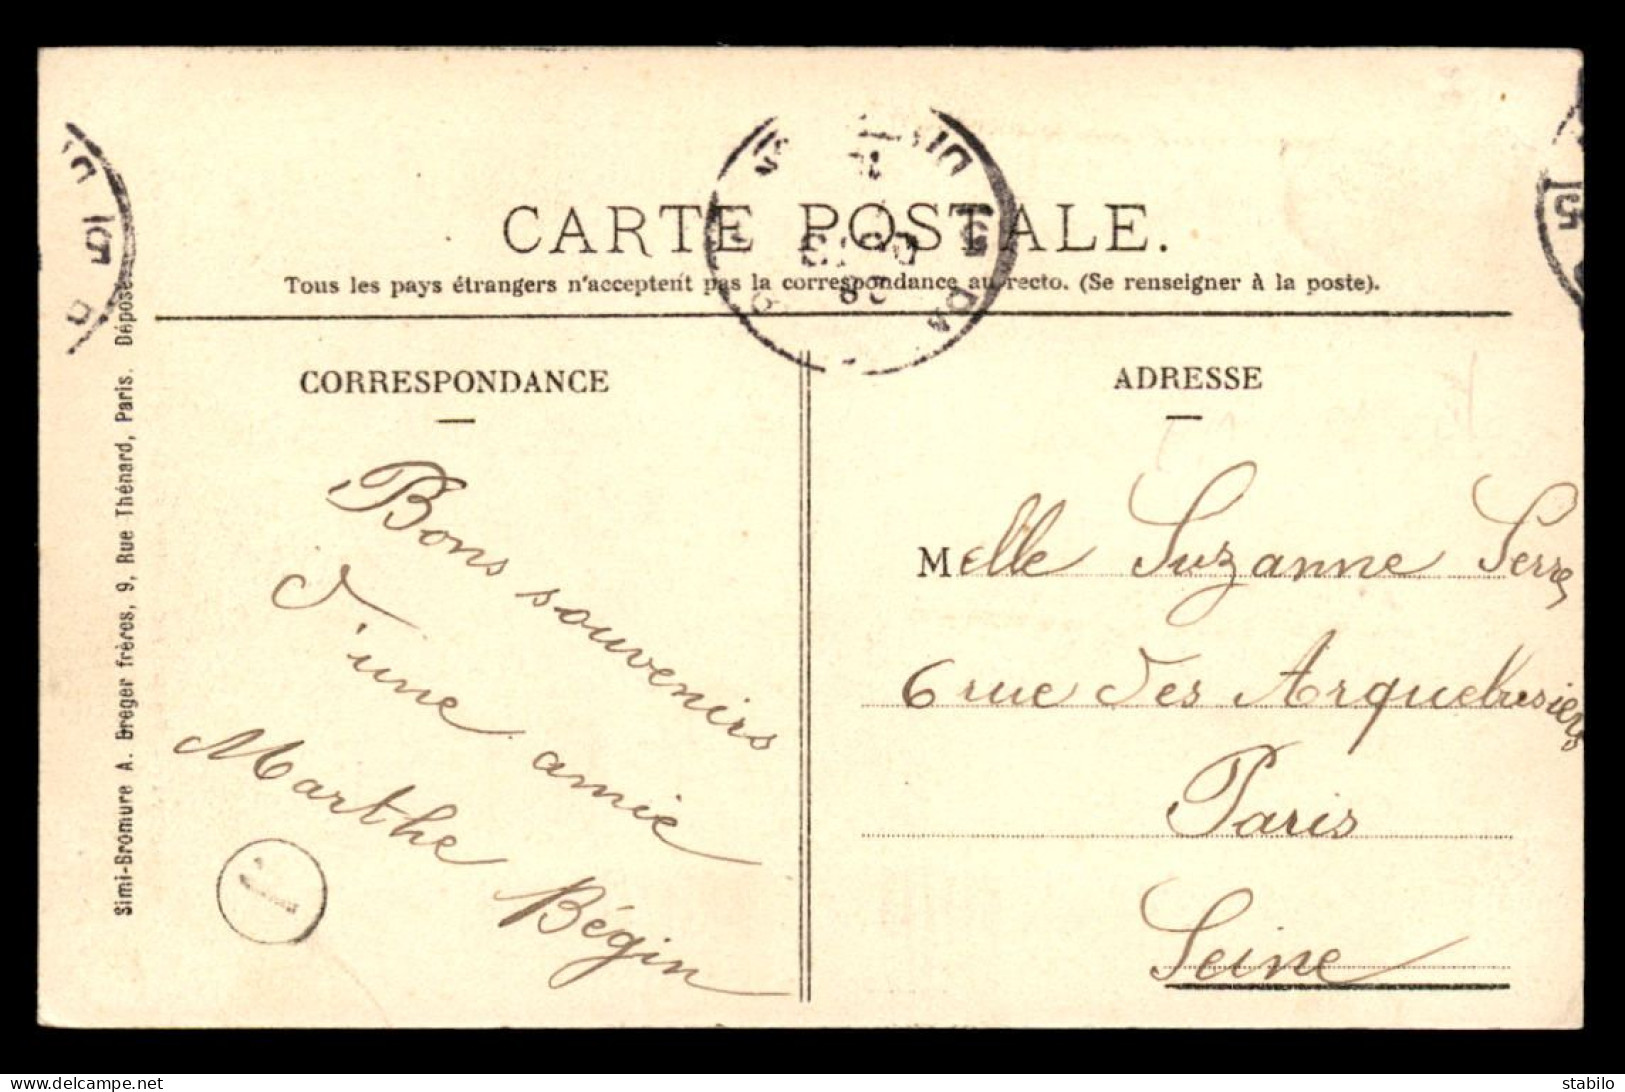 CARTE POSTALE.
Tous les pays étrangers n'acceptent pas la correspondance au recto. (Se renseigner à la poste).
CORRESPONDANCE
Bons souvenirs
d'une amie
Marthe Bégin
ADRESSE
Melle Suzanne Serres
6 rue des Arquebusiers
Paris
Seine
Simi-Bromure A. Breger frères, 9, Rue Thénard, Paris. Déposé
15
15
delcampe.net
stabilo